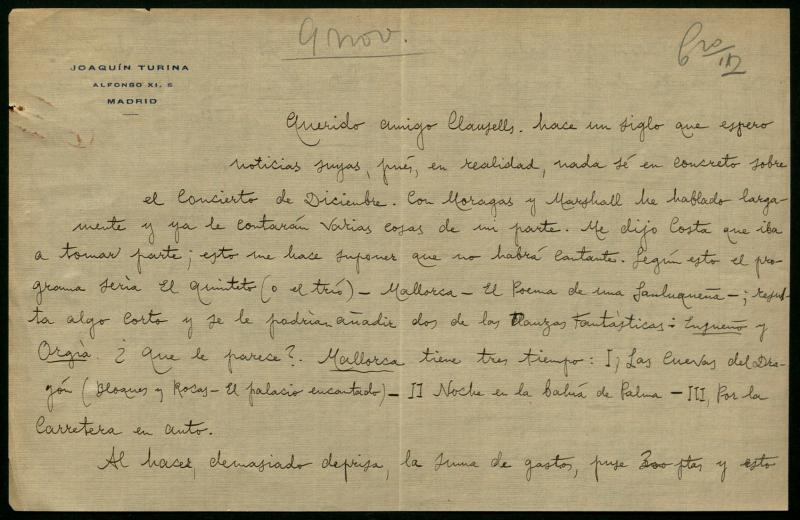 9 nov.
JOAQUÍN TURINA
ALFONSO XI, 5
MADRID
Querido amigo Clausells. hace un siglo que espero
noticias suyas, pués, en realidad, nada sé en concreto sobre
el Concierto de Diciembre. Con Moragas y Marshall he hablado larga-
mente y ya le contarán varias cosas de mi parte. Me dijo Costa que iba
a tomar parte; esto me hace suponer que no habrá cantante. Según esto el pro-
grama sería El Quinteto (o el trío) - Mallorca - El Poema de una Sanluqueña -; resul-
ta algo corto y se le podrían añadir dos de las Danzas Fantásticas: Ensueño y
Orgía. ¿Que le parece?. Mallorca tiene tres tiempo: I, Las Cuevas del Dra-
gón (Bloques y Rocas - El palacio encantado) - II Noche en la bahía de Palma - III, Por la
Carretera en auto.
Al hacer, demasiado deprisa, la suma de gastos, puse 300 ptas y esto